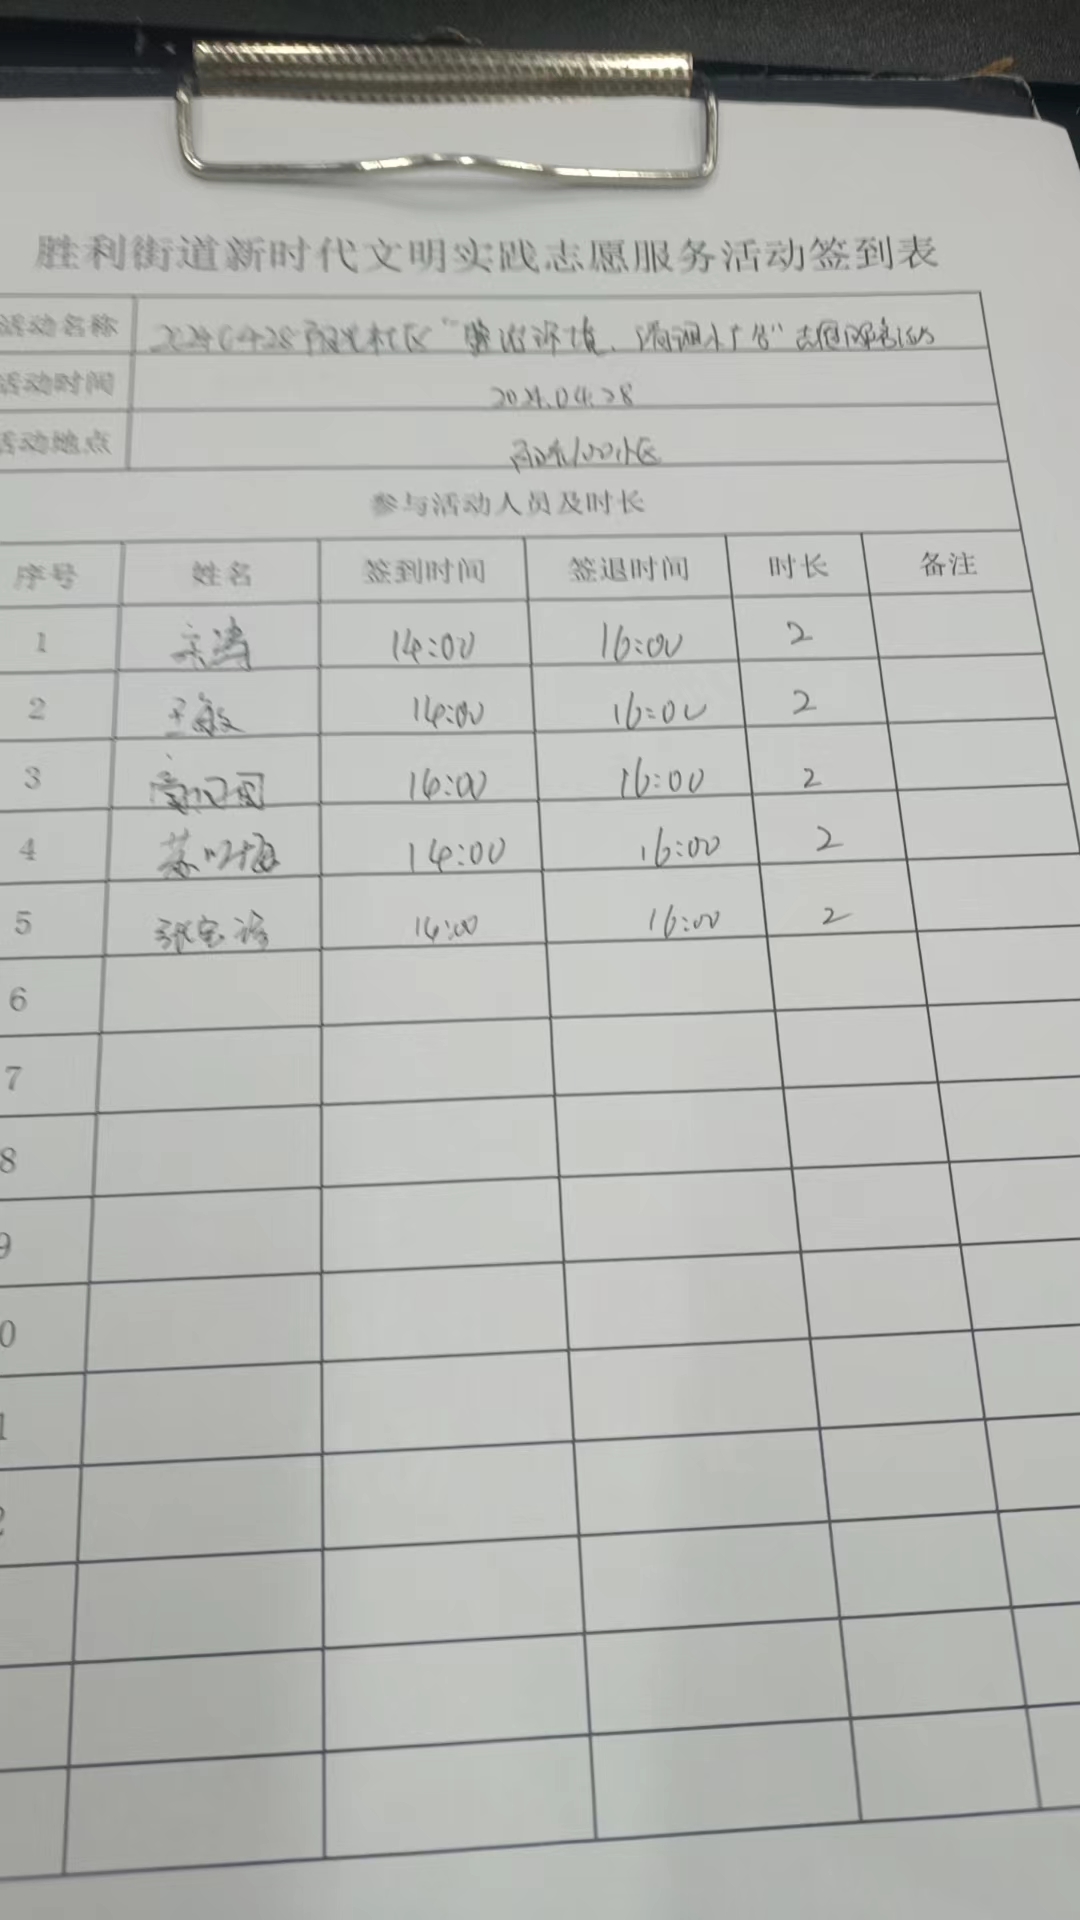 胜利街道新时代文明实践志愿服务活动签到表
活动名称 20240428阳光社区“整治环境、清理小广告”志愿服务活动
活动时间 2024.04.28
活动地点 阳光100小区
参与活动人员及时长
序号 姓名 签到时间 签退时间 时长 备注
1 14:00 16:00 2
2 王敏 14:00 16:00 2
3 14:00 16:00 2
4 14:00 16:00 2
5 张宝 14:00 16:00 2
6
7
8
9
0
1
2